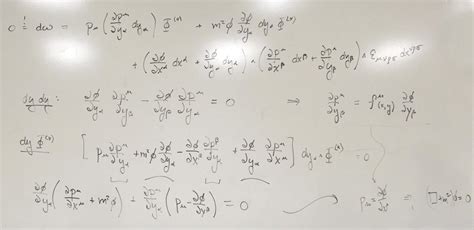 0 ≟ dω = p_μ (∂p^μ/∂y_α dy_α) Φ^(s) + m²φ ∂φ/∂y_α dy_α Φ^(s)
+ (∂φ/∂x^α dx^α + ∂φ/∂y_α dy_α) ∧ (∂p^μ/∂x^β dx^β + ∂p^μ/∂y_β dy_β) ∧ ε_μνρσ dx^νρσ
dy dy : ∂φ/∂y_α ∂p^μ/∂y_β − ∂φ/∂y_β ∂p^μ/∂y_α = 0 ⇒ ∂p^μ/∂y_β = f^μ(x,y) ∂φ/∂y_β
dy Φ^(s) [ p_μ ∂p^μ/∂y_α + m²φ ∂φ/∂y_α − ∂φ/∂x^β ∂p^β/∂y_α + ∂φ/∂y_α ∂p^μ/∂x^μ ] dy_α ∧ Φ^(s) = 0
∂φ/∂y_α (∂p^μ/∂x^μ + m²φ) + ∂p^μ/∂y_α (p_μ − ∂φ/∂x^μ) = 0 p_μ = ∂φ/∂x^μ (□+m²)φ=0